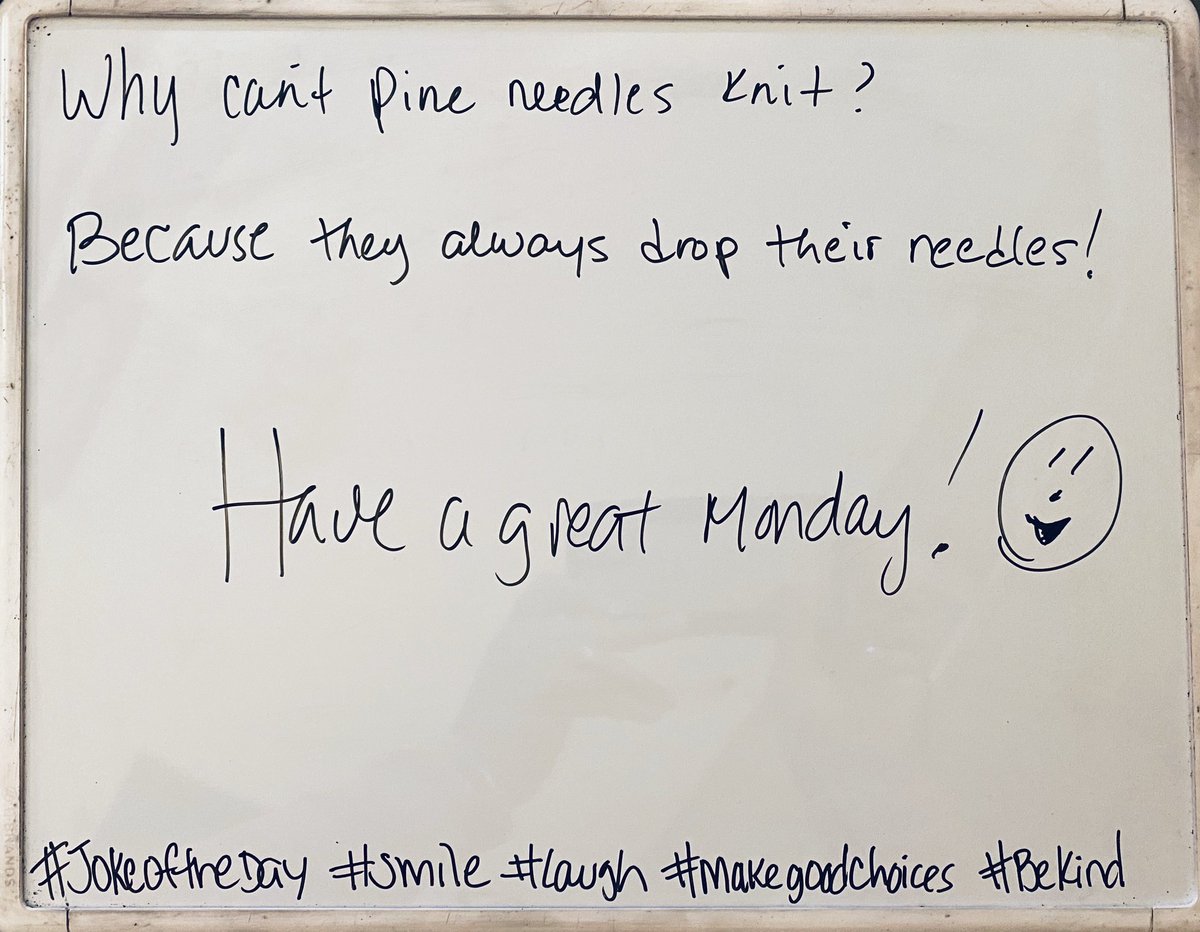 Why can't pine needles knit?
Because they always drop their needles!
Have a great Monday!
#JokeoftheDay #Smile #Laugh #Makegoodchoices #BeKind